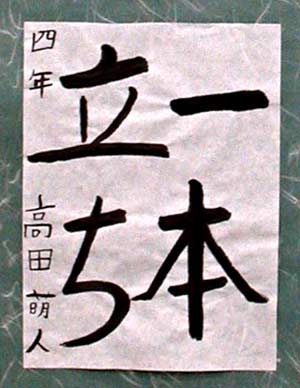 一本
立ち
四年 高田萌人